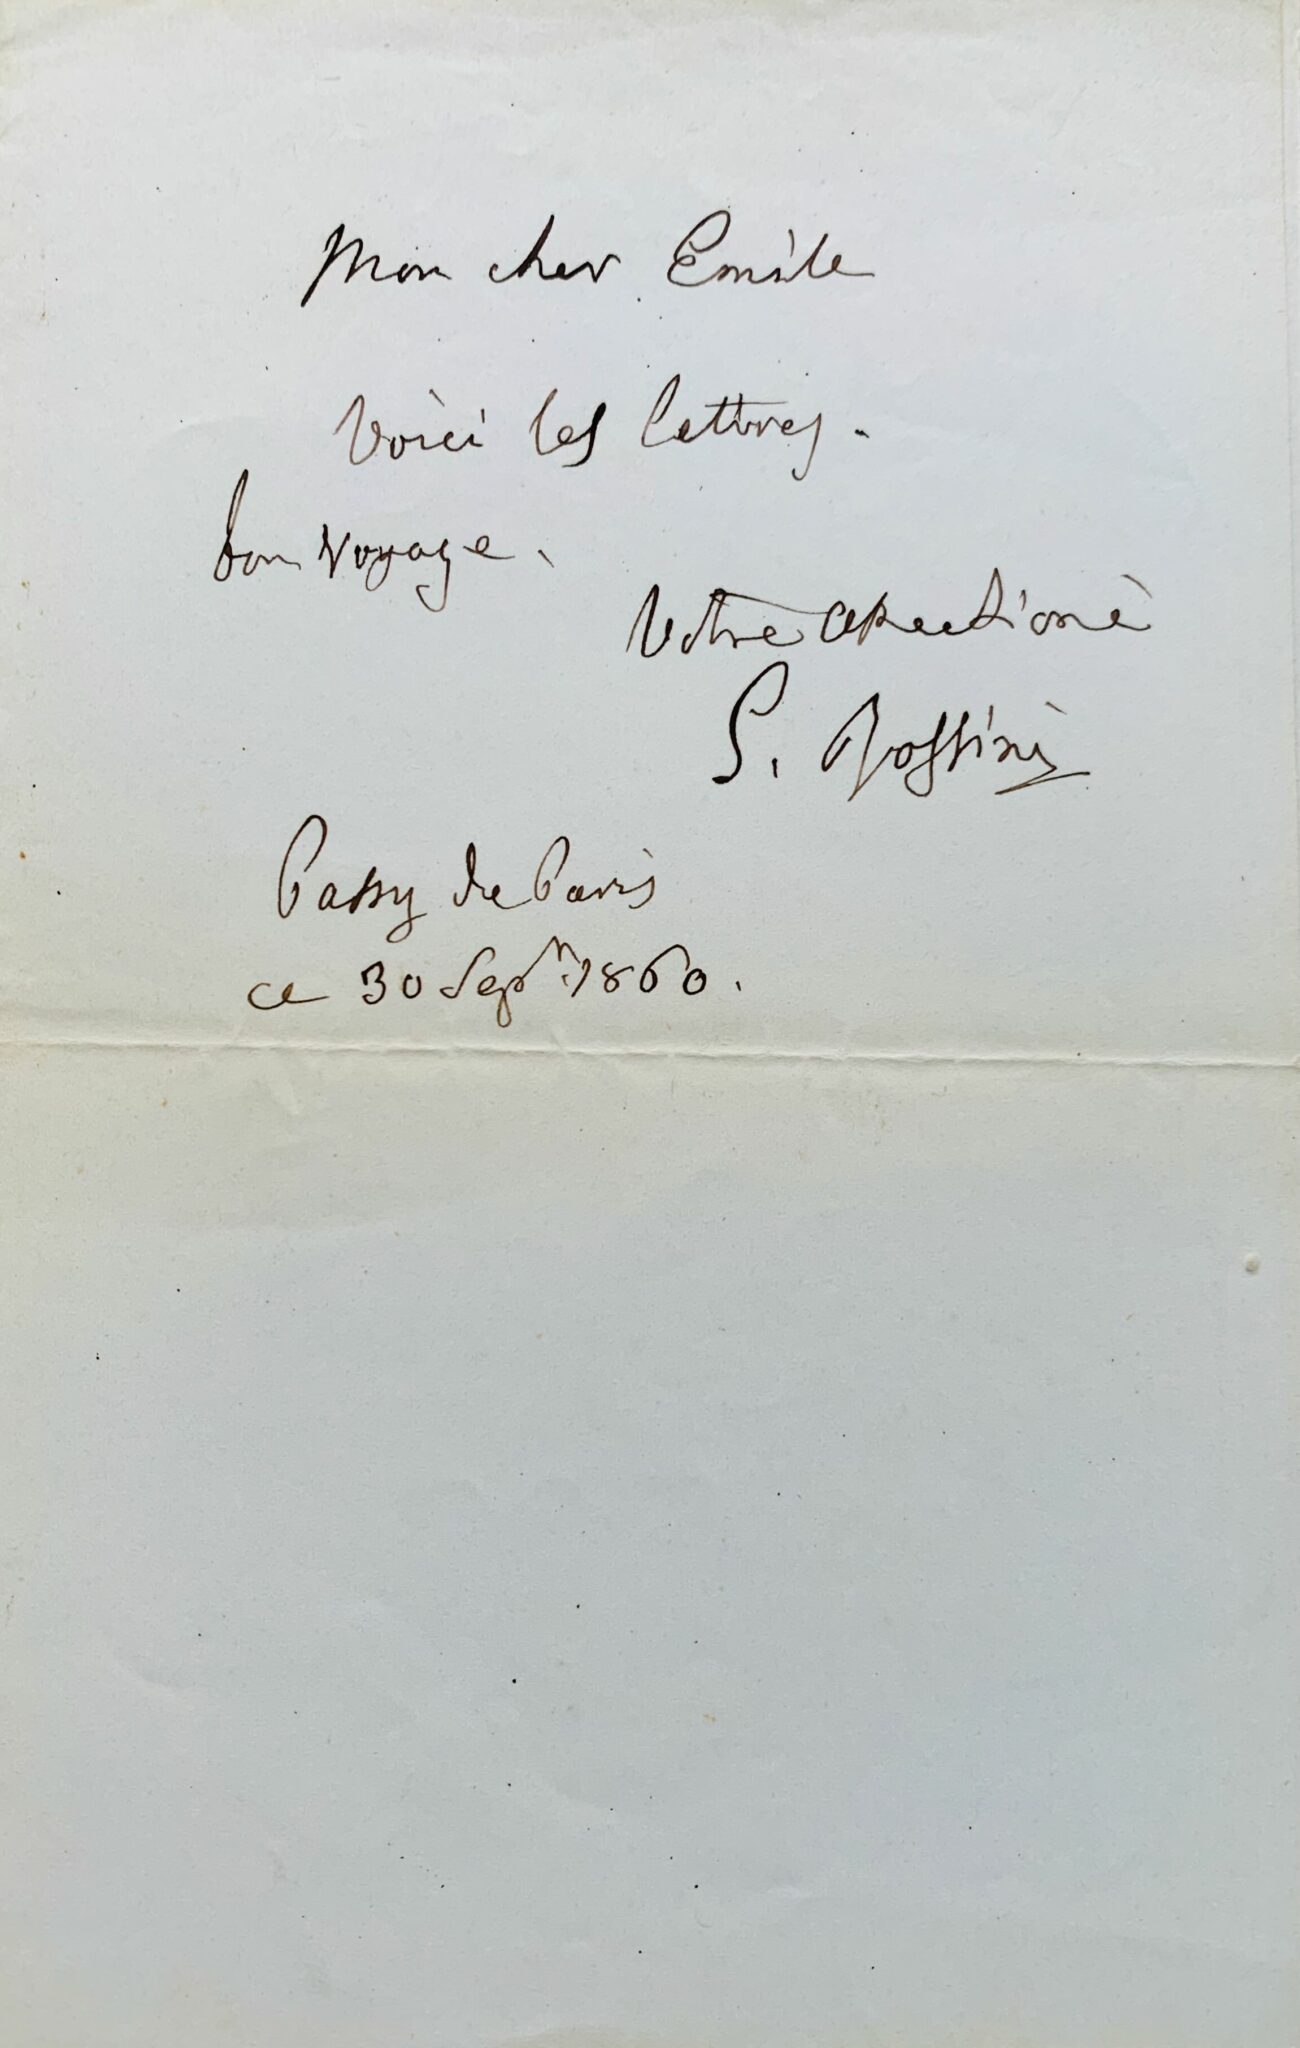 Mon cher Emile
Voici les lettres.
bon Voyage.
Votre affectioné
G. Rossini
Passy de Paris
ce 30 Sep.re 1860.